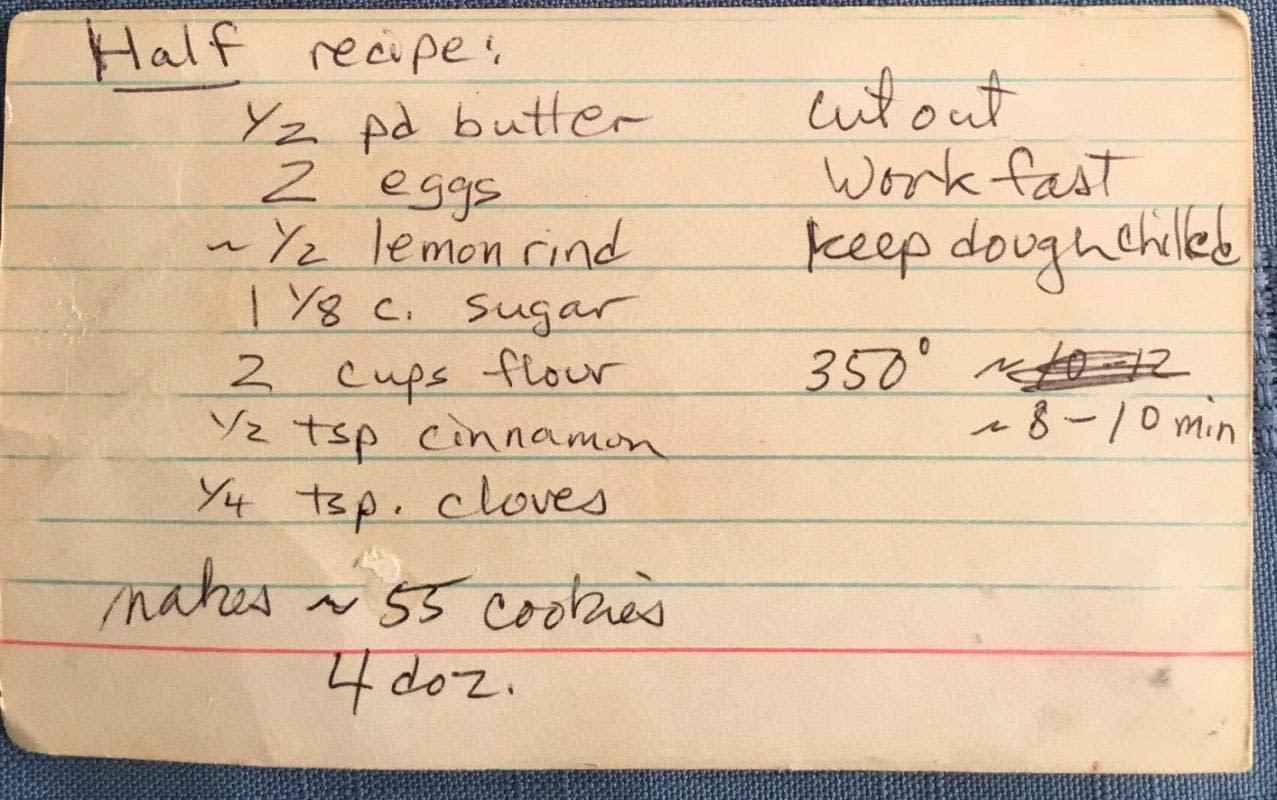 Half recipe:
1/2 pd butter
2 eggs
~ 1/2 lemon rind
1 1/8 c. sugar
2 cups flour
1/2 tsp cinnamon
1/4 tsp. cloves
makes ~ 55 cookies
4 doz.
cut out
Work fast
keep dough chilled
350° ~ 10-12
~ 8-10 min